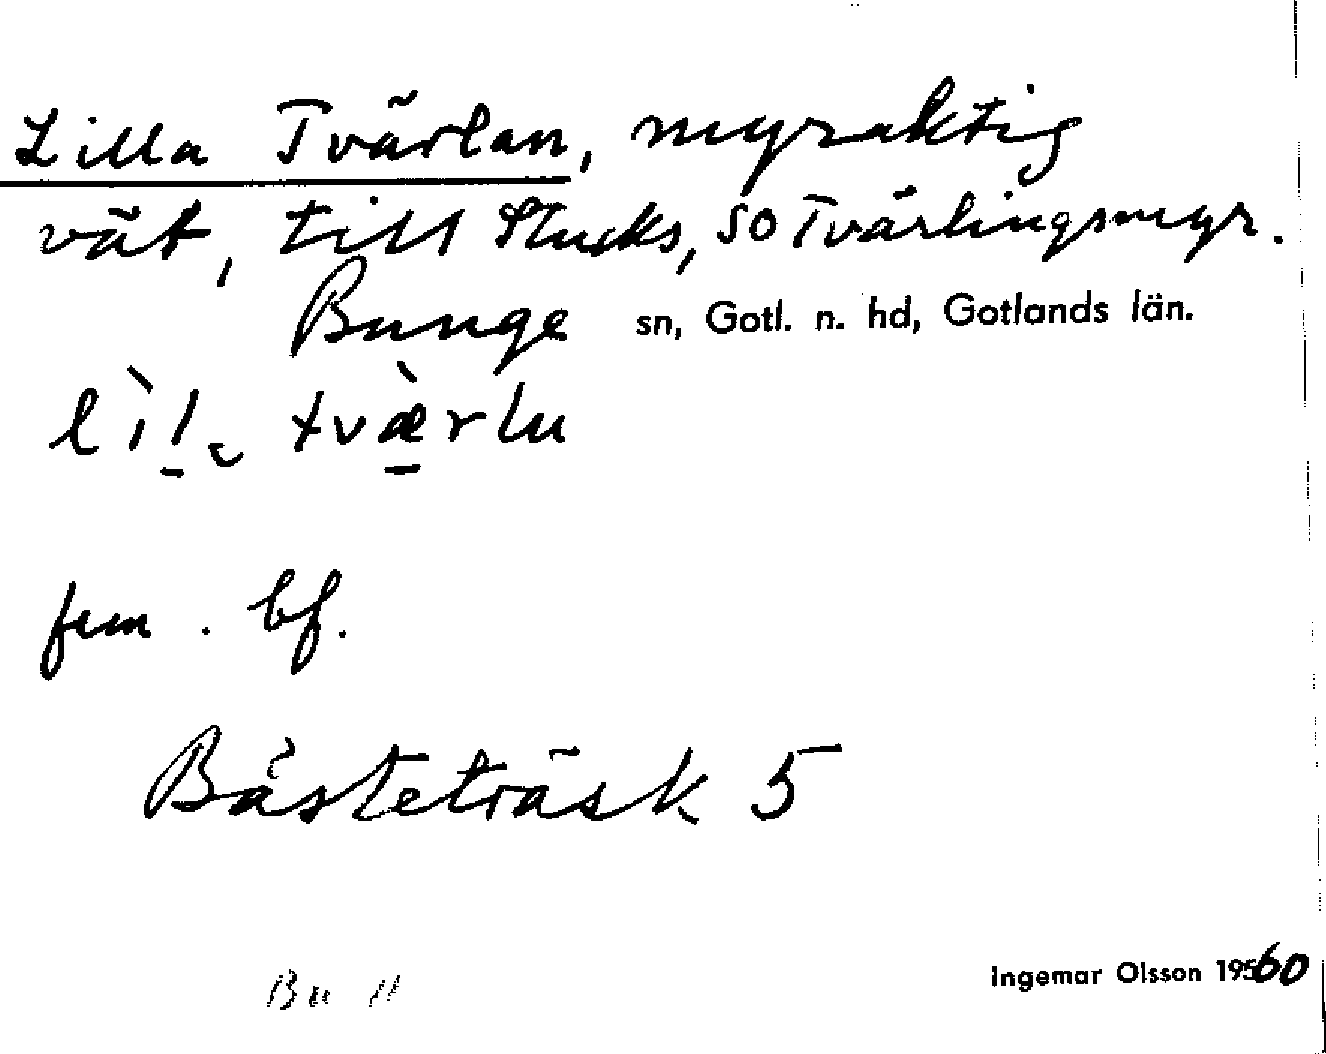 Lilla Tvärlan, myraktig
vät, till Stucks, SO Tvärlingsmyr.
Bunge sn, Gotl. n. hd, Gotlands län.
tvæ̀rlu
fem. bf.
Bästeträsk 5
Bu 11
Ingemar Olsson 1960